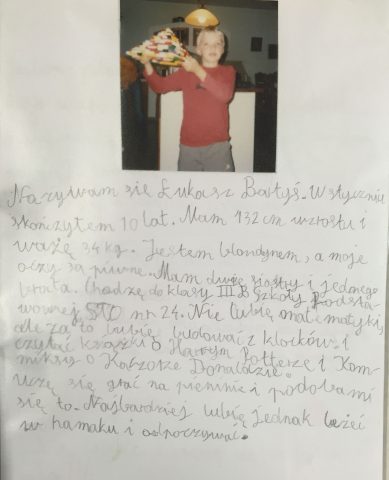 Nazywam się Łukasz Bartyś. W styczniu
skończyłem 10 lat. Mam 132 cm wzrostu i
ważę 34 kg. Jestem blondynem, a moje
oczy są piwne. Mam dwie siostry i jednego
brata. Chodzę do klasy III B Szkoły Podsta-
wowej STO nr 24. Nie lubię matematyki,
ale za to lubię budować z klocków i
czytać książki o Harrym Potterze i Kom-
miksy o Kaczorze Donaldzie.
Uczę się grać na pianinie i podoba mi
się to. Najbardziej lubię jednak leżeć
w hamaku i odpoczywać.